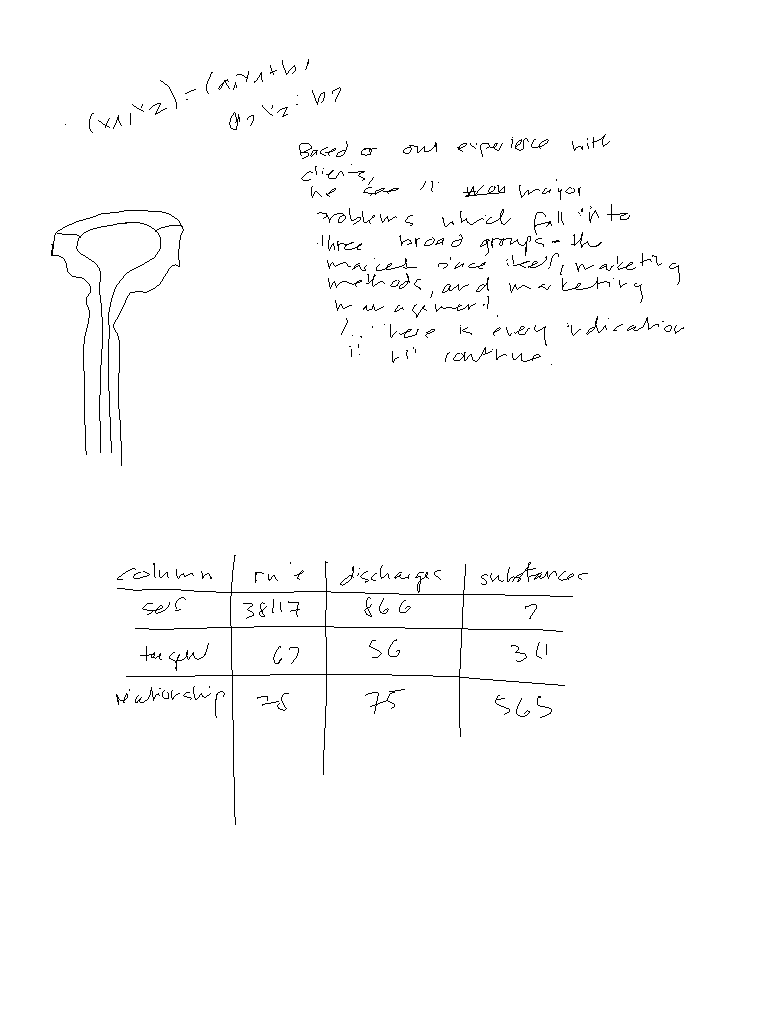 (x1, x2) = (a1x1 + b1
a2x2 : b2
Based o our experience with
clients,
we see 11 major
problems which fall into
three broad groups - the
market place itself, marketing
methods, and marketing
management.
There is every indication
it will continue.
column rule discharges substances
self 38117 866 ?
target 67 56 341
relationship 28 75 565